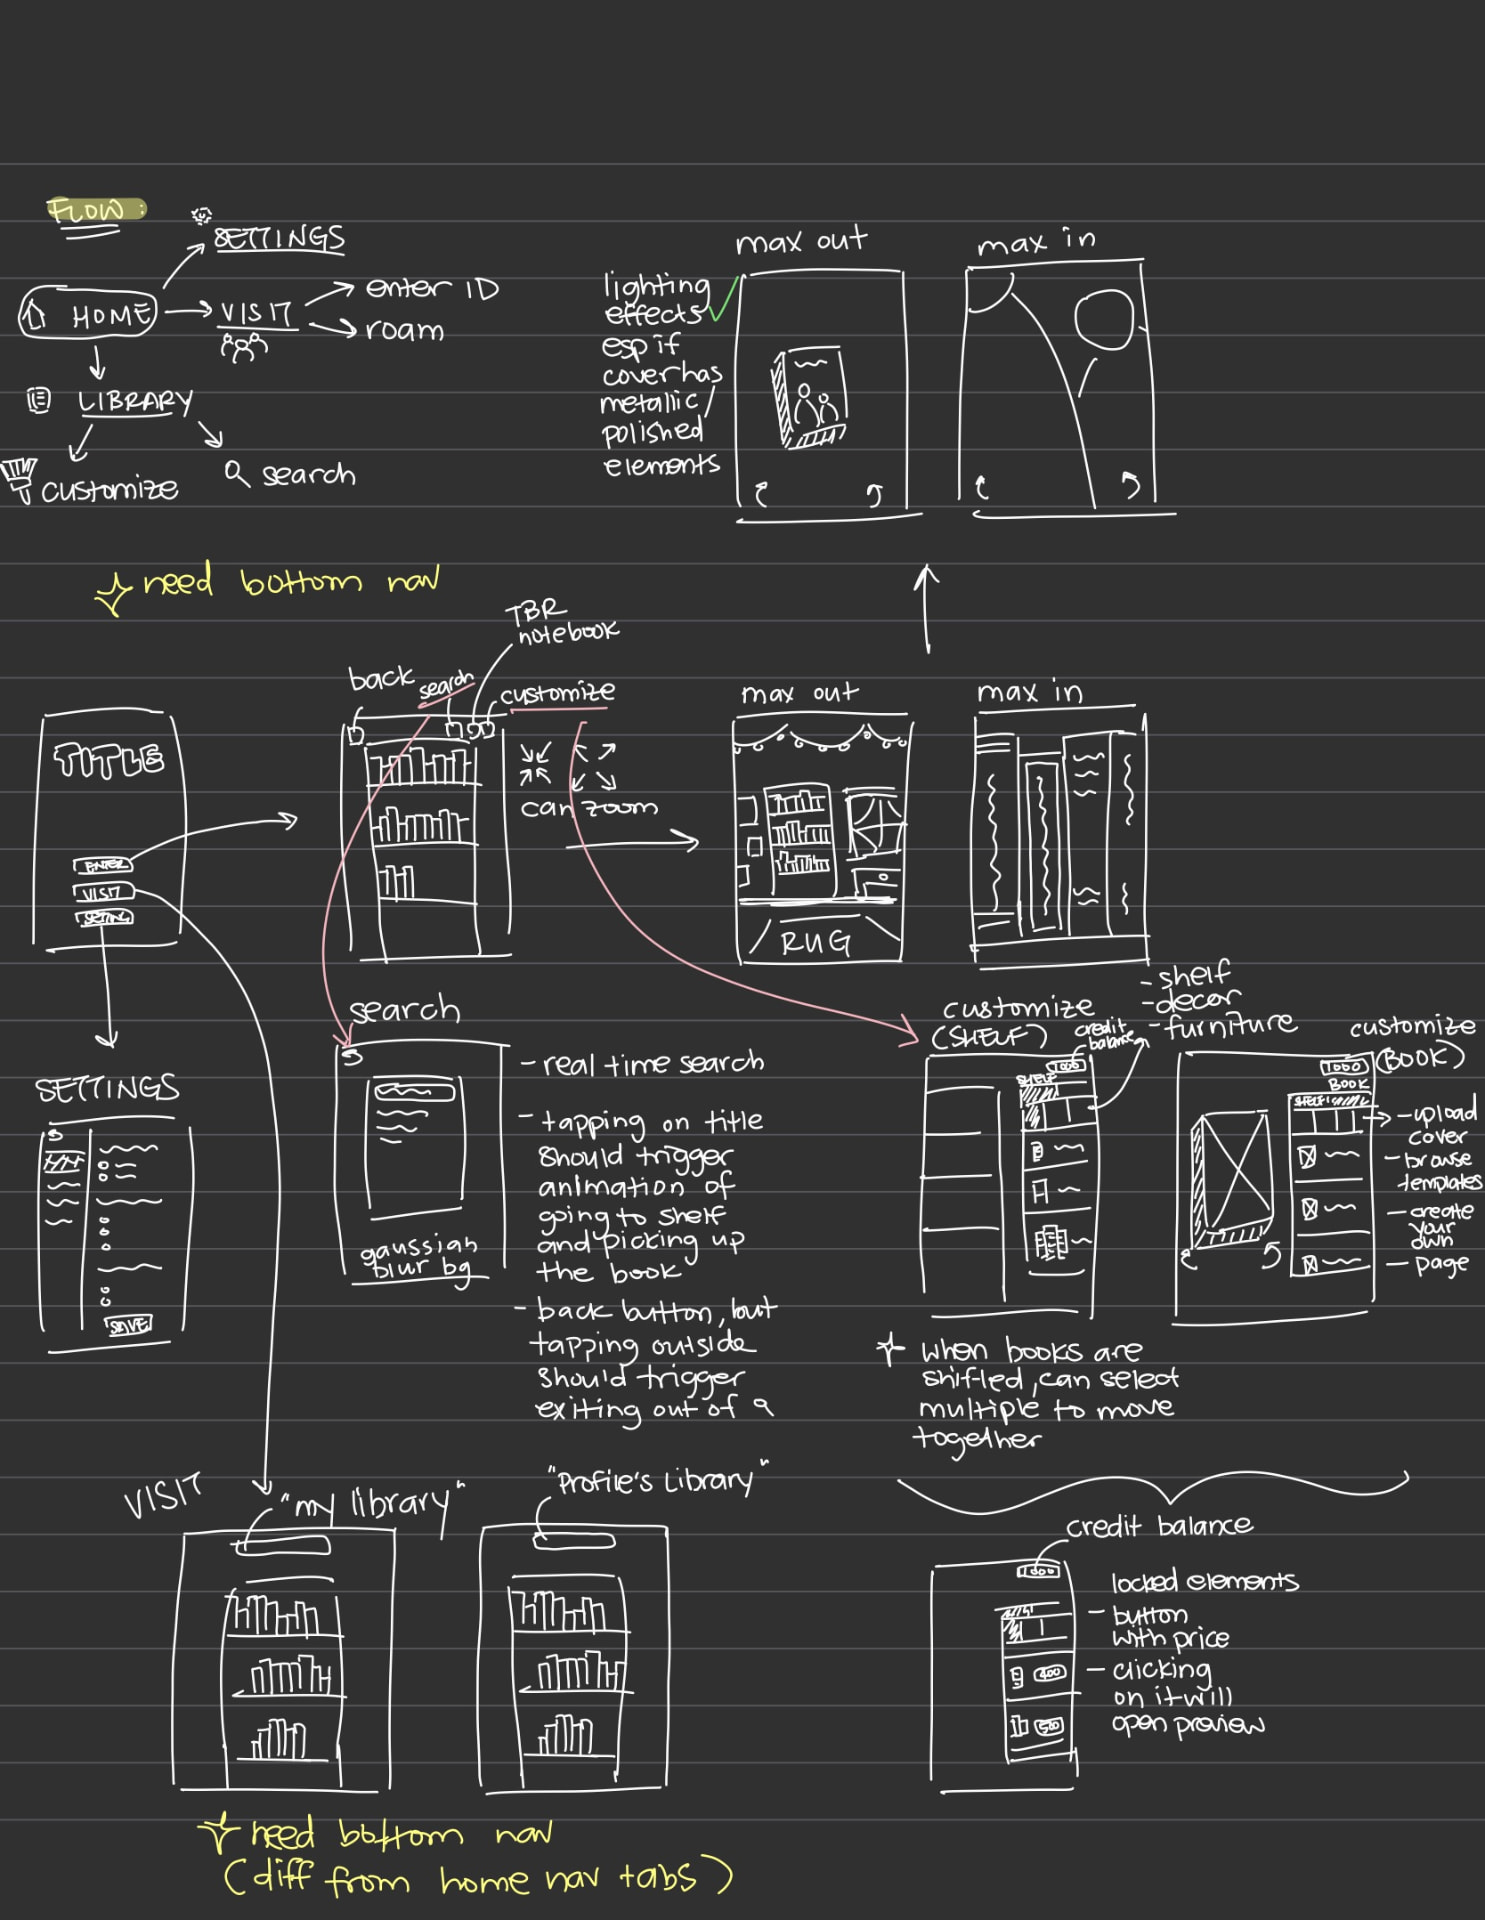 FLOW:
SETTINGS
HOME
VISIT
enter ID
roam
LIBRARY
customize
search
need bottom nav
max out
max in
lighting
effects
esp if
cover has
metallic/
polished
elements
TITLE
ENTER
VISIT
SETTING
back
search
TBR
notebook
customize
can zoom
max out
RUG
max in
SETTINGS
SAVE
search
gaussian
blur bg
- real time search
- tapping on title
should trigger
animation of
going to shelf
and picking up
the book
- back button, but
tapping outside
should trigger
exiting out of
customize
(SHELF)
credit
balance
1000
SHELF
- shelf
- decor
- furniture
customize
(BOOK)
1000
BOOK
SHELF
- upload
cover
- browse
templates
- create
your
own
- page
when books are
shifted, can select
multiple to move
together
VISIT
"my library"
"Profile's Library"
credit balance
1000
400
500
locked elements
- button
with price
- clicking
on it will
open preview
need bottom nav
(diff from home nav tabs)